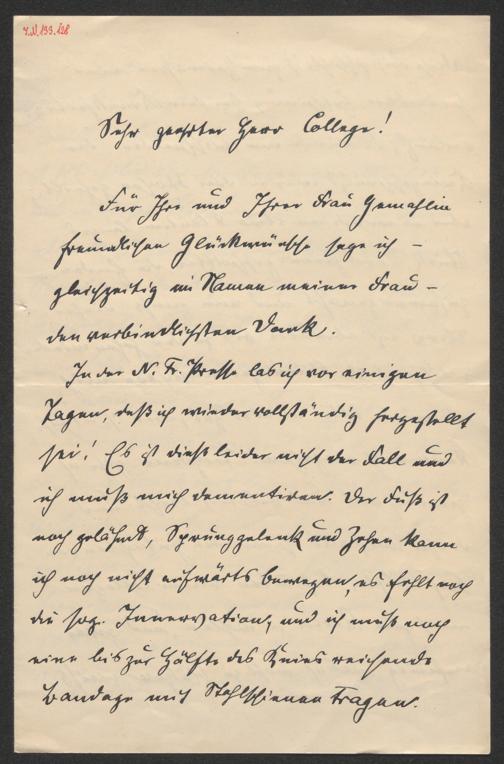 I.N. 199.128
Sehr geehrter Herr College!
Für Ihre und Ihrer Frau Gemahlin
freundlichen Glückwünsche sage ich –
gleichzeitig im Namen meiner Frau –
den verbindlichsten Dank.
In der N. Fr. Presse las ich vor einigen
Tagen, daß ich wieder vollständig hergestellt
sei! Es ist dieß leider nicht der Fall und
ich muß mich dementiren. Der Fuß ist
noch gelähmt, Sprunggelenk und Zehen kann
ich noch nicht aufwärts bewegen, es fehlt noch
die sog. Innervation, und ich muß noch
eine bis zur Hälfte des Knies reichende
Bandage mit Stahlschienen tragen.